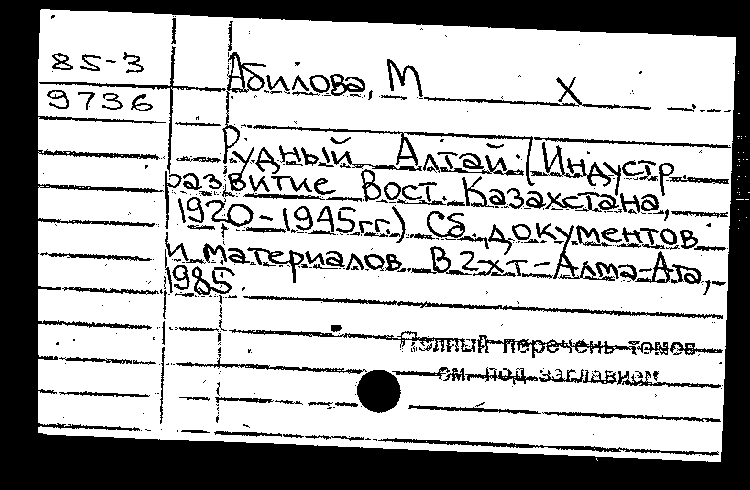 85-3
9736
Абилова, М Х
Рудный Алтай: (Индустр
развитие Вост. Казахстана,
1920-1945гг.) Сб. документов
и материалов В 2х т - Алма-Ата,
1985.
Полный перечень томов
см. под заглавием